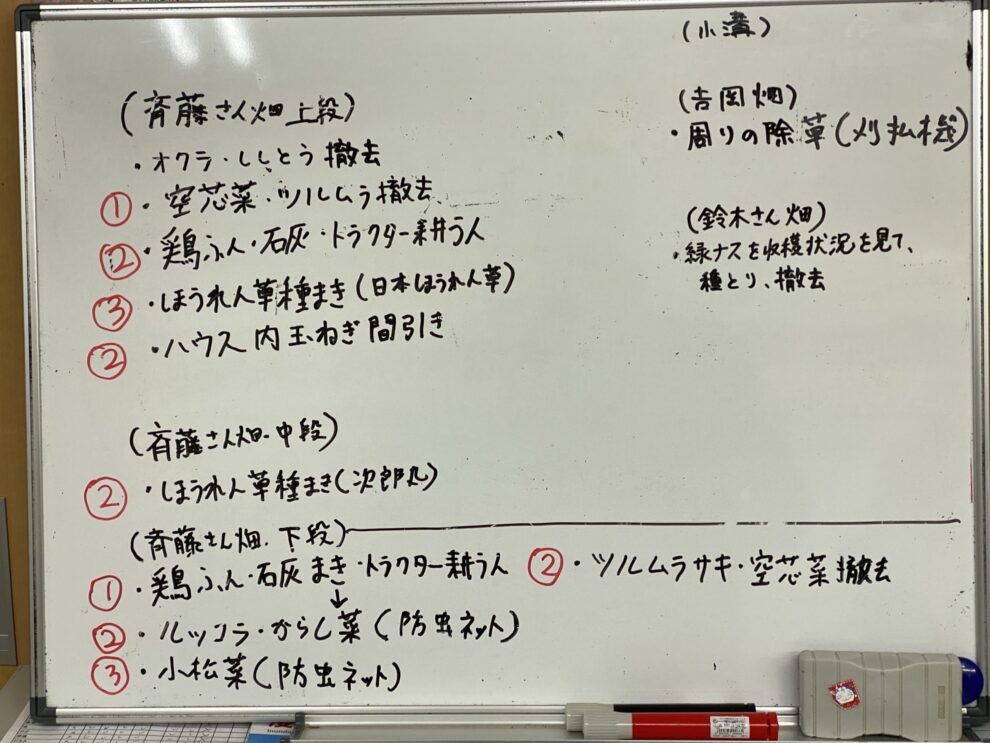 (斉藤さん畑上段)
・オクラ・ししとう撤去
①・空芯菜・ツルムラ撤去
②・鶏ふん・石灰・トラクター耕うん
③・ほうれん草種まき(日本ほうれん草)
②・ハウス内玉ねぎ間引き
(斉藤さん畑.中段)
②・ほうれん草種まき(次郎丸)
(斉藤さん畑.下段)
①・鶏ふん・石灰まき・トラクター耕うん
↓
②・ルッコラ・からし菜(防虫ネット)
③・小松菜(防虫ネット)
②・ツルムラサキ・空芯菜撤去
(小溝)
(吉岡畑)
・周りの除草(刈払機)
(鈴木さん畑)
・緑ナスを収穫状況を見て、
種とり、撤去